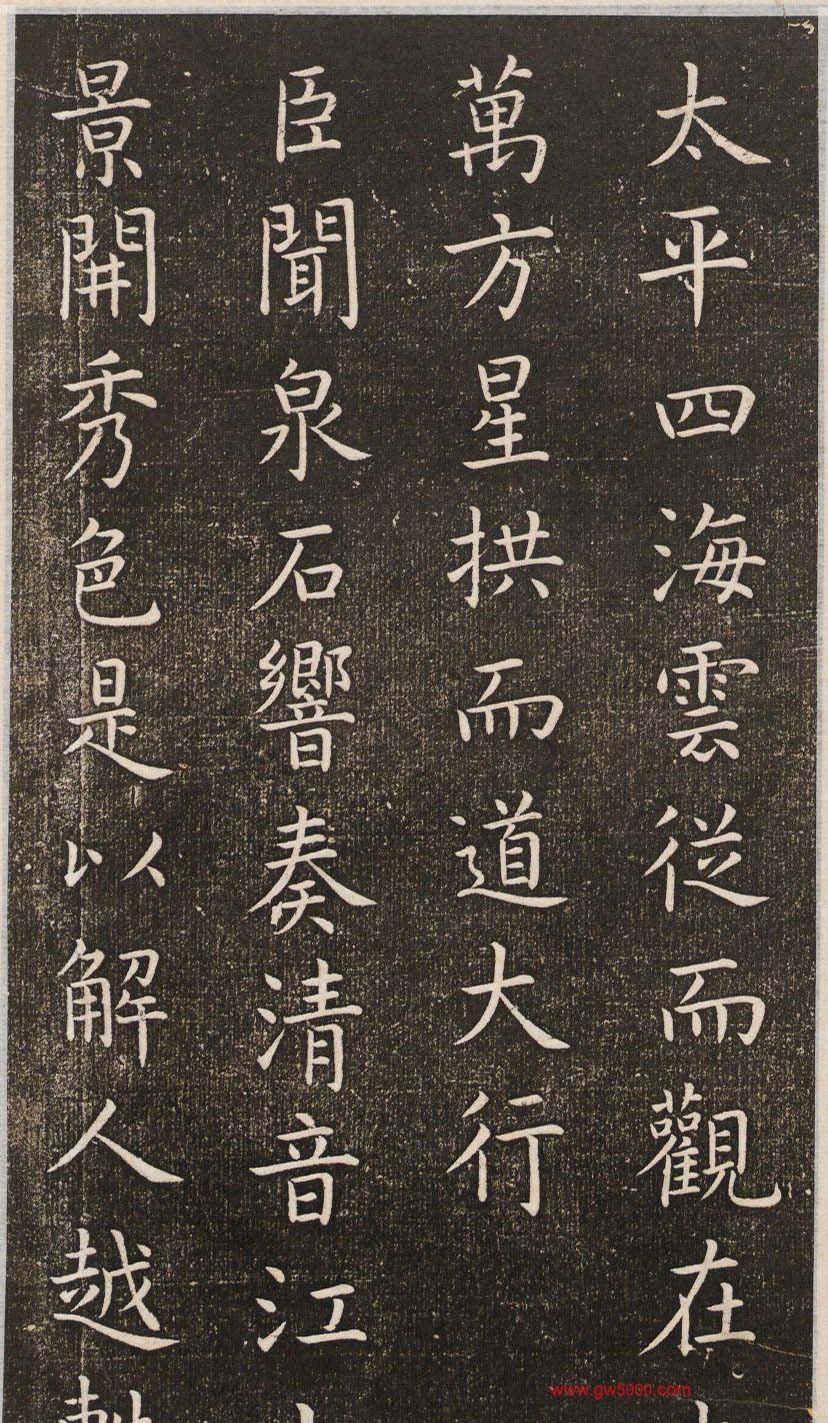 太平四海雲從而觀在
萬方星拱而道大行
臣聞泉石響奏清音江
景開秀色是以解人越
www.gw5000.com